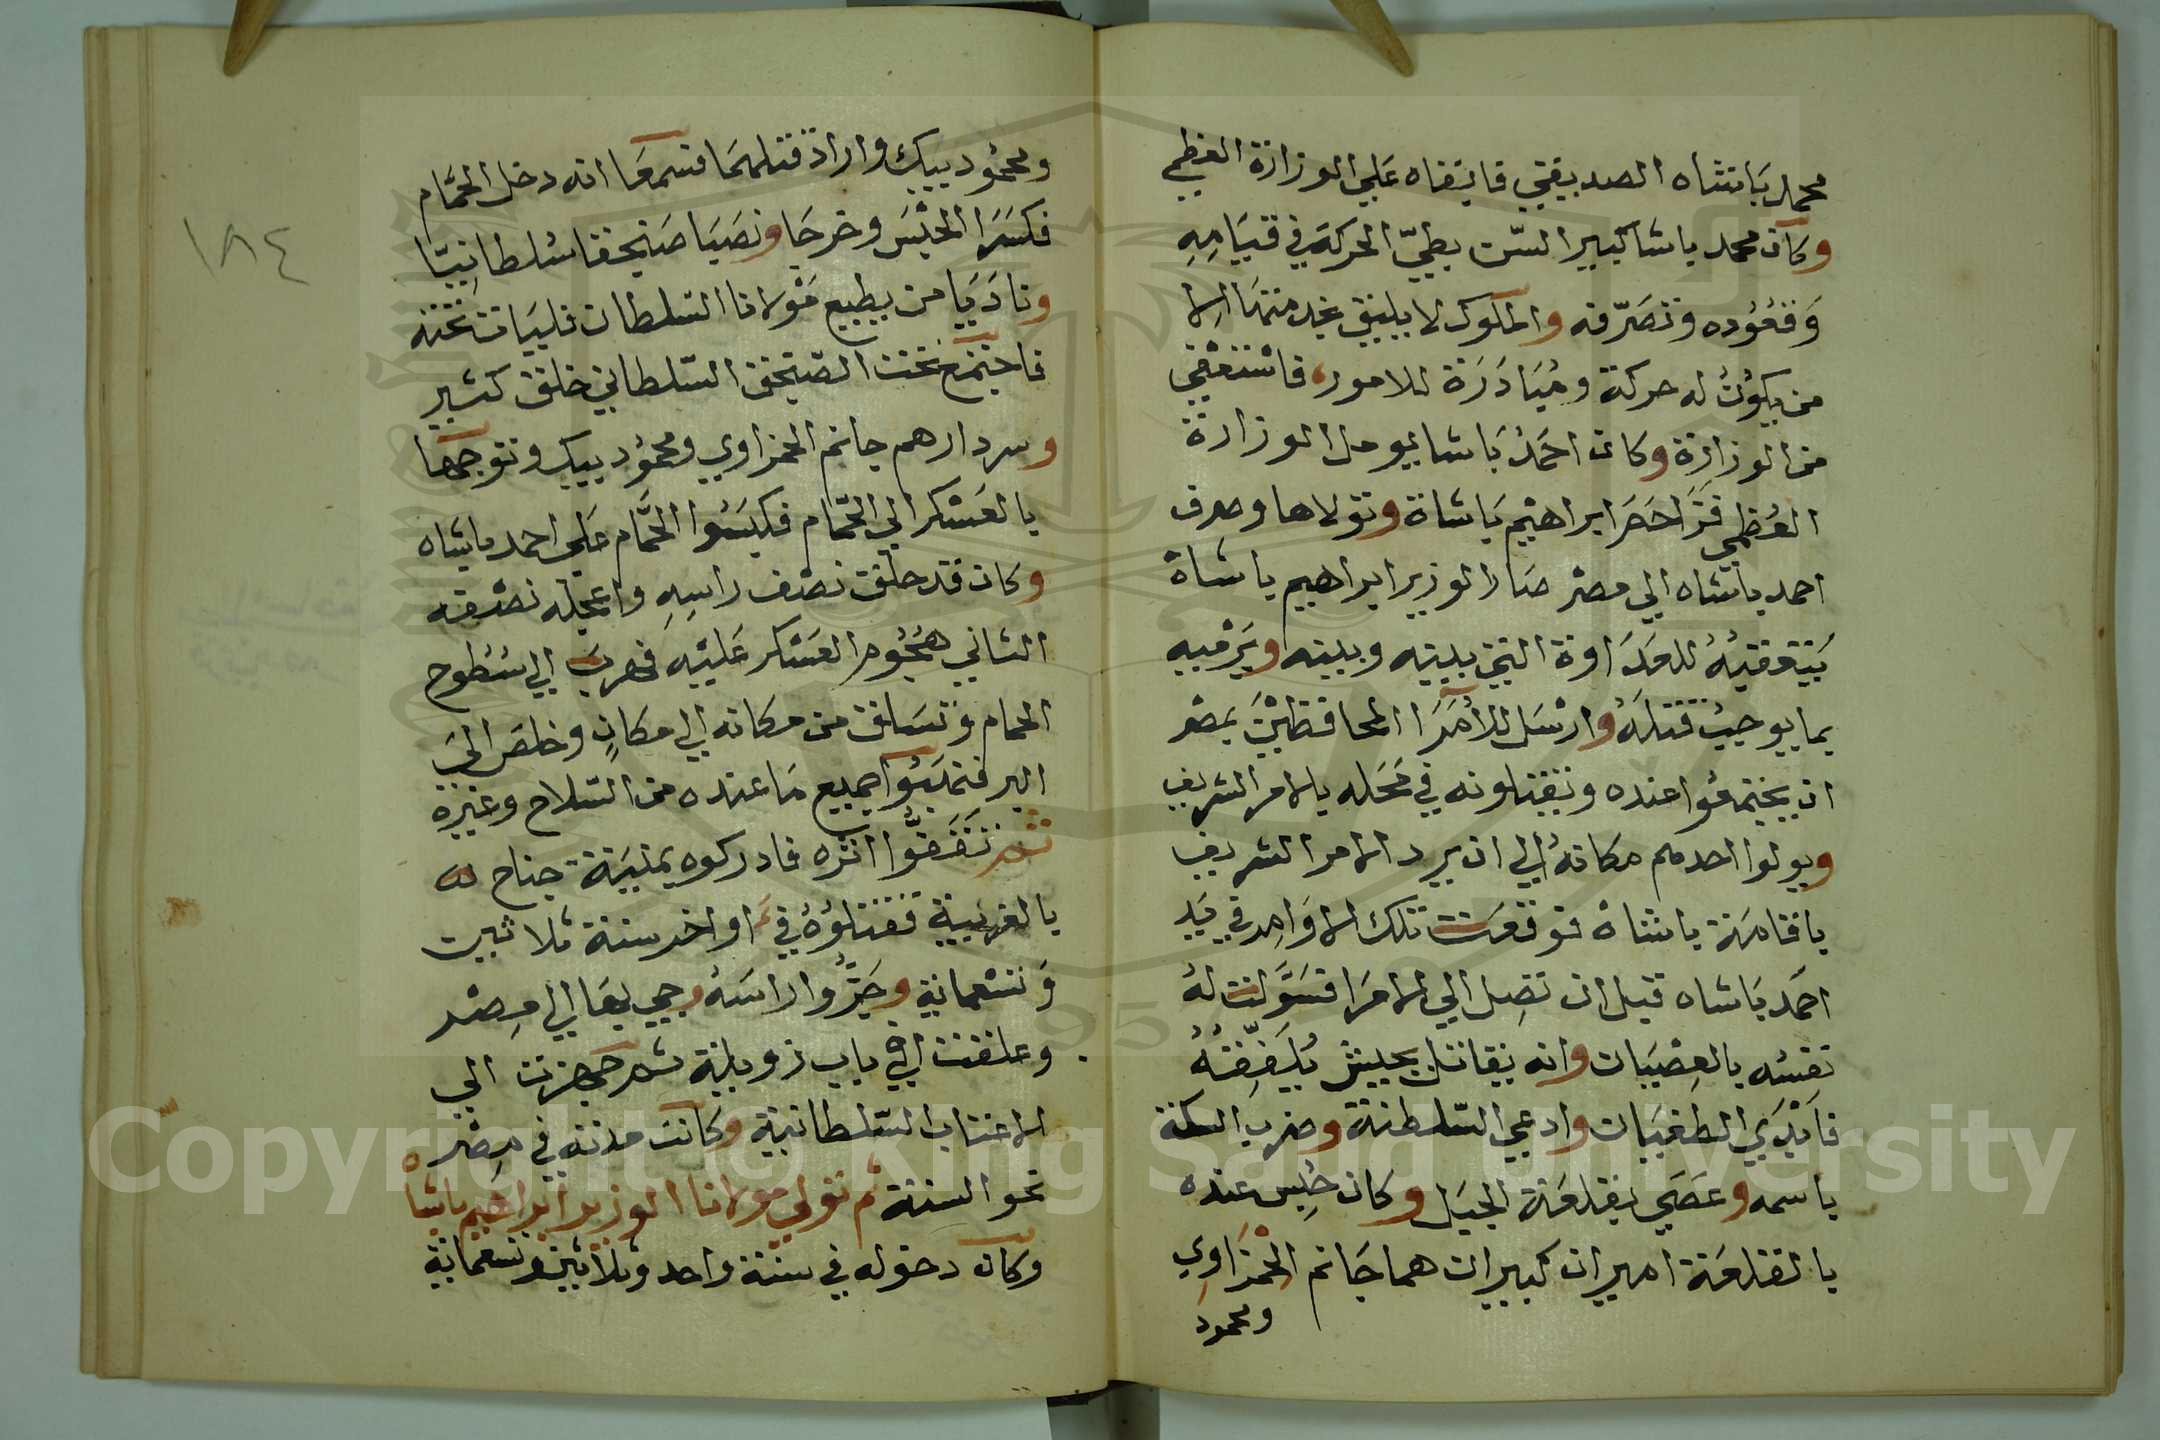 محمد باشاه الصديقي فابقاه علي الوزارة العظمي
وكان محمد باشا كبير السن بطيّ الحركة في قيامه
وقعوده وتصرّفه والملوك لا يليق بخدمتها الا
من يكون له حركة ومُبادَرَة للامور، فاستعفي
من الوزارة وكان احمد باشا يومل الوزارة
العُظمي فزاحمَ ابراهيم باشاة وتولاها وصرف
احمد باشاه الي مصر صار الوزير ابراهيم باشاة
للعداوة التي بينه وبينه ويرميه
بما يوجب قتله وارسل للأمَرَا المحافظين بمصر
ان يجتمعوا عنده ويقتلونه في محله بالامر الشريف
ويولوا احدهم مكانه الي ان يرد الامر الشريف
باقامة باشاة فوقعت تلك الاوامر في يد
احمد باشاه قبل ان تصل الي الامرا فسوّلت له
نفسه بالعصيان وانه يقاتل بجيش
فابدي الطغيان وادعي السلطنة وضرب السكة
باسمه وعصي بقلعة الجبل وكان حُبس عنده
بالقلعة اميران كبيران هما جانم الحمزاوي
ومحمود
ومحمود بيك واراد قتلهما فسمعا انه دخل الحمّام
فكسَرا الحبْسَ وخرجا ونصَبَا صنجقا سُلطانيّا
وناديَا من يطيع مولانا السّلطان فليات تحته
فاجتمع تحت الصّنجق السّلطاني خلق كثير
وسردارهم جانم الحمزاوي ومحمود بيك وتوجها
بالعسكر الي الحمّام فكبسُوا الحمَّام علي احمد باشاه
وكان قد حلق نصف راسِهِ واعجله نصفه
الثاني هُجُوم العسْكر عَليْه فهرب الي سُطوح
الحمام وتسَلق من مكانه الي مكانٍ وخلصَ الى
البر فنهبُوا جميع ما عنده من السّلاح وغيره
ثم تَقفّوُّا اثره فادركوه بمنية جناح
بالغربية فقتلوُهُ في اواخر سنة ثلاثين
وتسعماية وحَزُّوا راسَهُ وجي بها الي مِصْر
وعلقت في باب زويلة ثم جهزت الي
الاعتاب السّلطانية وكانت مدته في مِصْر
نحو السنة ثم تولي مولانا الوزير ابراهيم باشاه
وكان دخوله في سنة واحد وثلاثين وتسعماية
١٨٤
Copyright © King Saud University
1957